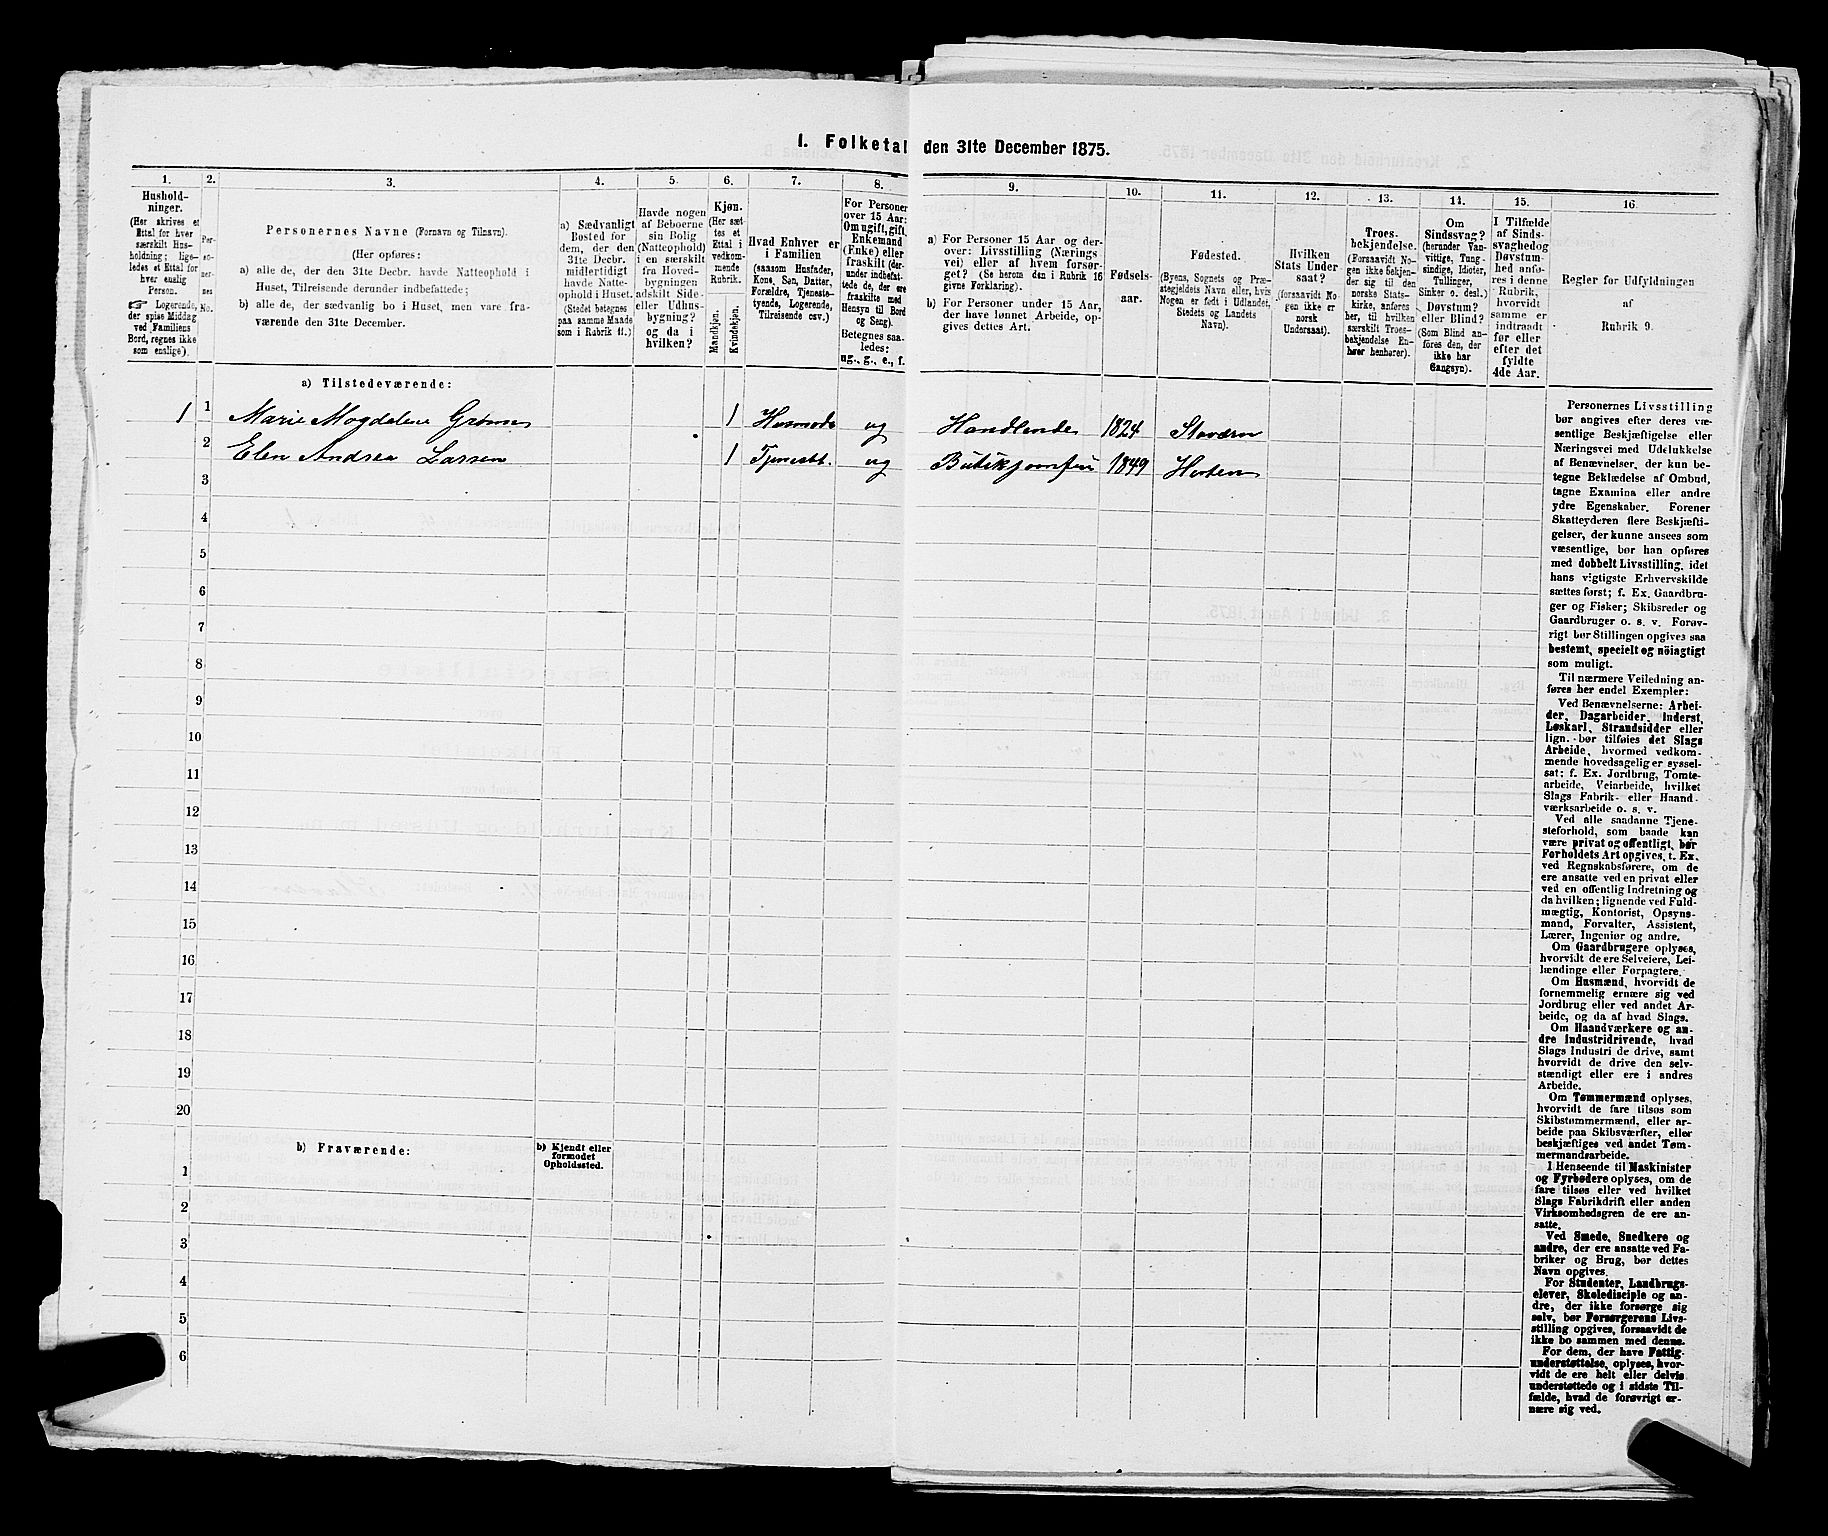 1. Folketal den 31te December 1875.
1. 2. 3. 4. 5. 6. 7. 8. 9. 10. 11. 12. 13. 14. 15. 16
Hushold-
ninger.
(Her skrives et
Ettal for hver
særskilt Hus-
holdning; lige-
ledes et Ettal for
hver enslig
Person.
☞ Logerende,
der spise Middag
ved Familiens
Bord, regnes ikke
som enslige).
Per-
so-
ner-
nes
No.
Personernes Navne (Fornavn og Tilnavn).
(Her opføres:
a) alle de, der den 31te Decbr. havde Natteophold i
Huset, Tilreisende derunder indbefattede;
b) alle de, der sædvanlig bo i Huset, men vare fra-
værende den 31te December.
a) Sædvanligt
Bosted for
dem, der den
31te Decbr.
midlertidigt
havde Natte-
ophold i Huset.
(Stedet betegnes
paa samme Maade
som i Rubrik 11.)
Havde nogen
af Beboerne
sin Bolig
(Natteophold)
i en særskilt
fra Hoved-
bygningen
adskilt Side-
eller Udhus-
bygning?
og da i
hvilken?
Kjøn.
(Her sæt-
tes et
Ettal i
vedkom-
mende
Rubrik.
Mandkjøn.
Kvindekjøn.
Hvad Enhver er
i Familien
(saasom Husfader,
Kone, Søn, Datter,
Forældre, Tjeneste-
tyende, Logerende,
Tilreisende osv.).
For Personer
over 15 Aar:
Om ugift, gift,
Enkemand
(Enke) eller
fraskilt (der-
under indbefat-
tede de, der ere
fraskilte med
Hensyn til Bord
og Seng).
Betegnes saa-
ledes:
ug., g., e., f.
a) For Personer 15 Aar og der-
over: Livsstilling (Nærings
vei) eller af hvem forsør-
get? (Se herom den i Rubrik 16
givne Forklaring).
b) For Personer under 15 Aar,
der have lønnet Arbeide, op-
gives dettes Art.
Fødsels-
aar.
Fødested.
(Byens, Sognets og Præ-
stegjeldets Navn eller, hvis
Nogen er født i Udlandet,
Stedets og Landets
Navn).
Hvilken
Stats Under
saat?
(forsaavidt No-
gen ikke er
norsk
Undersaat).
Troes-
bekjendelse.
(Forsaavidt No-
gen ikke bekjen-
der sig til den
norske Stats-
kirke, anføres
her, til hvilken
særskilt Troes-
bekjendelse En-
hver henhører).
Om
Sindssvag?
(herunder Van-
vittige, Tung-
sindige, Idioter,
Tullinger,
Sinker o. desl.)
Døvstum?
eller Blind?
(Som Blind an-
føres den, der
ikke har
Gangsyn).
I Tilfælde
af Sinds-
svaghedog
Døvstum-
hed anfø-
res i denne
Rubrik,
hvorvidt
samme er
indtraadt
før eller
efter det
fyldte
4de Aar.
Regler for Udfyldningen
af
Rubrik 9.
a) Tilstedeværende:
1 1 Marie Magdalene Grønn 1 Husmode ug Handlende 1824 Staværn
2 Elen Andrea Larsen 1 Tjenestt. ug Butikjomfru 1849 Horten
3
4
5
6
7
8
9
10
11
12
13
14
15
16
17
18
19
20
b) Fraværende:
b) Kjendt eller
formodet
Opholdssted.
1
2
3
4
5
6
Personernes Livsstilling
bør angives efter deres væ-
sentlige Beskjæftigelse eller
Næringsvei med Udelukkelse
af Benævnelser, der kun be-
tegne Beklædelse af Ombud,
tagne Examina eller andre
ydre Egenskaber. Forener
Skatteyderen flere Beskjæfti-
gelser, der kunne ansees som
væsentlige, bør han opføres
med dobbelt Livsstilling, idet
hans vigtigste Erhvervskilde
sættes først; f. Ex. Gaardbru-
ger og Fisker; Skibsreder og
Gaardbruger o. s. v. Forøv-
rigt bør Stillingen opgives saa
bestemt, specielt og nöiagtigt
som muligt.
Til nærmere Veiledning an-
føres her endel Exempler:
Ved Benævnelserne: Arbei-
der, Dagarbeider, Inderst,
Løskarl, Strandsidder eller
lign. bør tilføies det Slags
Arbeide, hvormed vedkom-
mende hovedsagelig er syssel-
sat; f. Ex. Jordbrug, Tomte-
arbeide, Veiarbeide, hvilket
Slags Fabrik- eller Haand-
værksarbeide o. s. v.
Ved alle saadanne Tjene-
steforhold, som baade kan
være privat og offentligt, bør
Forholdets Art opgives, t. Ex.
ved Regnskabsførere, om de
ere ansatte ved en privat eller
ved en offentlig Indretning og
da hvilken; lignende ved Fuld-
mægtig, Kontorist, Opsyns-
mand, Forvalter, Assistent,
Lærer, Ingeniør og andre.
Om Gaardbrugere oplyses,
hvorvidt de ere Selveiere, Lei-
lændinge eller Forpagtere.
Om Husmænd, hvorvidt de
fornemmelig ernære sig ved
Jordbrug eller ved andet Ar-
beide, og da af hvad Slags.
Om Haandværkere og an-
dre Industridrivende, hvad
Slags Industri de drive, samt
hvorvidt de drive den selv-
stændigt eller ere i andres
Arbeide.
Om Tømmermænd oplyses,
hvorvidt de fare tilsøs som
Skibstømmermænd, eller ar-
beide paa Skibsværfter, eller
beskjæftiges ved andet Tøm-
mermandsarbeide.
I Henseende til Maskinister
og Fyrbødere oplyses, om de
fare tilsøs eller ved hvilket
Slags Fabrikdrift eller anden
Virksomhedsgren de ere an-
satte.
Ved Smede, Snedkere og
andre, der ere ansatte ved Fa-
briker og Brug, bør dettes
Navn opgives.
For Studenter, Landbrugs-
elever, Skoledisciple og an-
dre, der ikke forsørge sig
selv, bør Forsørgerens Livs-
stilling opgives, forsaavidt de
ikke bo sammen med denne.
For dem, der have Fattig-
understøttelse, oplyses, hvor-
vidt de ere helt eller delvis
understøttede og i sidste Til-
fælde, hvad de forøvrigt er-
nære sig ved.